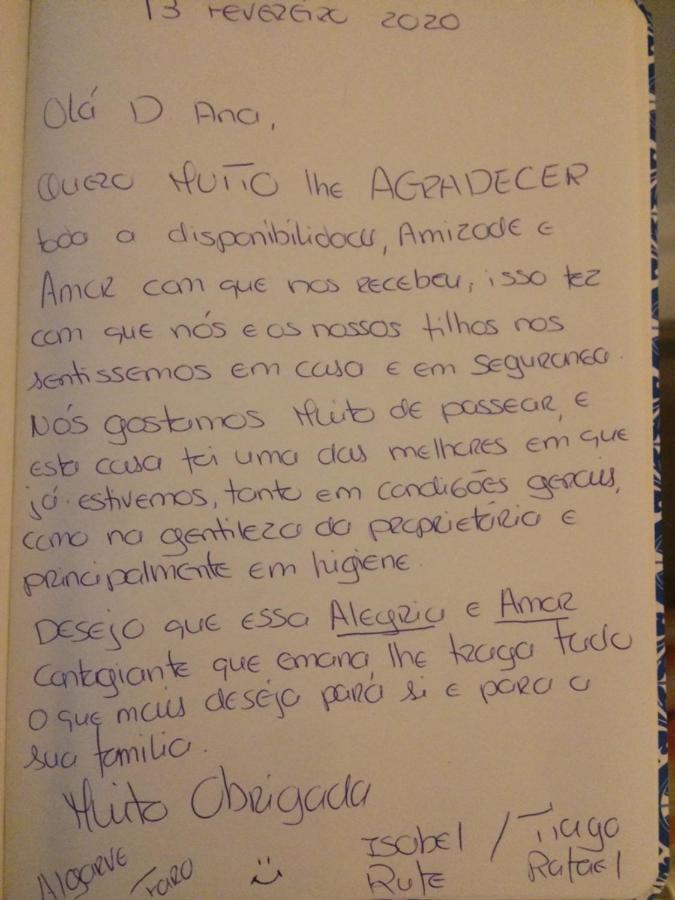 13 FEVEREIRO 2020
Olá D Ana,
QUERO MUITO lhe AGRADECER
toda a disponibilidade, Amizade e
Amor com que nos recebeu, isso fez
com que nós e os nossos filhos nos
sentíssemos em casa e em segurança.
Nós gostamos Muito de passear, e
esta casa foi uma das melhores em que
já estivemos, tanto em condições gerais,
como na gentileza da proprietária e
principalmente em higiene.
Desejo que essa Alegria e Amor
contagiante que emana lhe traga tudo
o que mais deseja para si e para a
sua família.
Muito Obrigada
Algarve Faro :) Isabel / Tiago
Rute Rafael